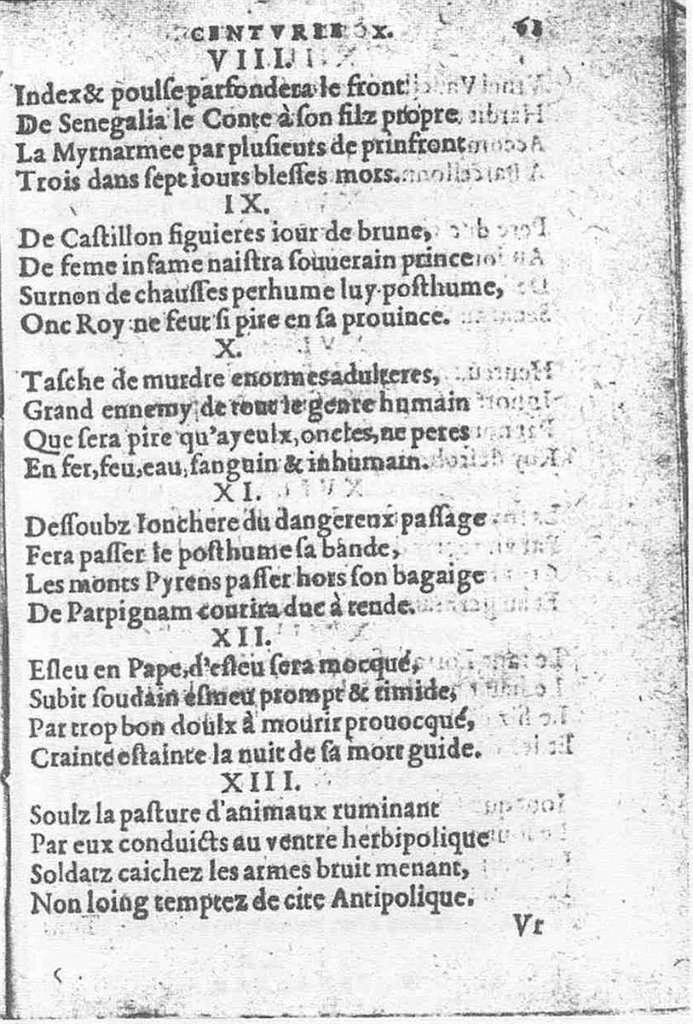 CENTVRIE X. 63
VIII.
Index & poulse parfondera le front
De Senegalia le Conte à son filz propre,
La Myrnarmee par plusieurs de prinfront
Trois dans sept iours blesses mors.
IX.
De Castillon figuieres iour de brune,
De feme infame naistra souuerain prince
Surnon de chausses perhume luy posthume,
Onc Roy ne feut si pire en sa prouince.
X.
Tasche de murdre enormes adulteres,
Grand ennemy de tout le genre humain
Que sera pire qu'ayeulx, oncles, ne peres
En fer, feu, eau, sanguin & inhumain.
XI.
Dessoubz Ionchere du dangereux passage
Fera passer le posthume sa bande,
Les monts Pyrens passer hors son bagaige
De Parpignam courira duc à tende.
XII.
Esleu en Pape, d'esleu sera mocqué,
Subit soudain esmeu prompt & timide,
Par trop bon doulx à mourir prouocqué,
Crainte estainte la nuit de sa mort guide.
XIII.
Soulz la pasture d'animaux ruminant
Par eux conduicts au ventre herbipolique
Soldatz caichez les armes bruit menant,
Non loing temptez de cite Antipolique.
Vr